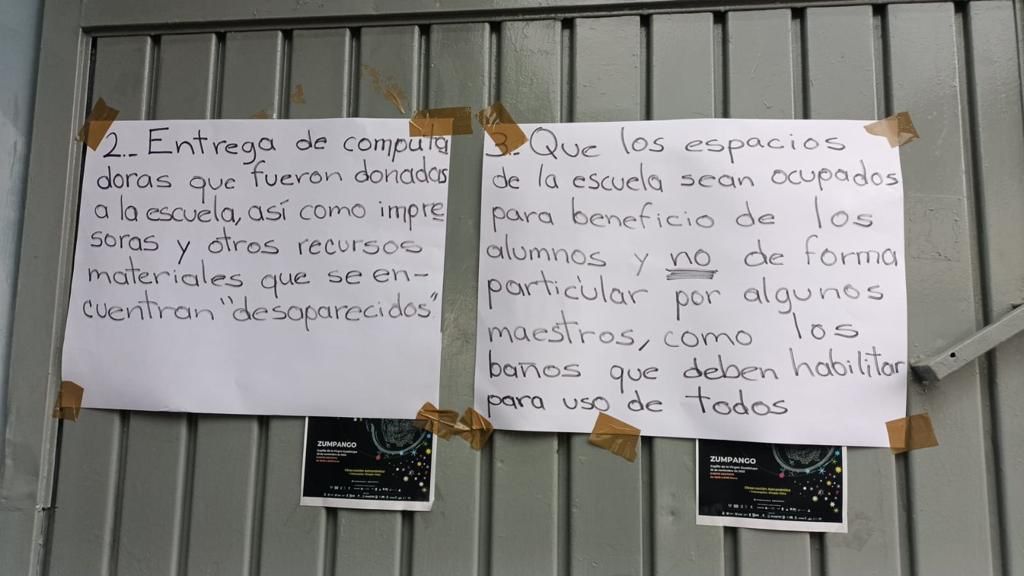 2.- Entrega de computa
doras que fueron donadas
a la escuela, así como impre
soras y otros recursos
materiales que se en-
cuentran "desaparecidos"
3. Que los espacios
de la escuela sean ocupados
para beneficio de los
alumnos y no de forma
particular por algunos
maestros, como los
baños que deben habilitar
para uso de todos
ZUMPANGO
Observación Astronómica
ZUMPANGO
Observación Astronómica